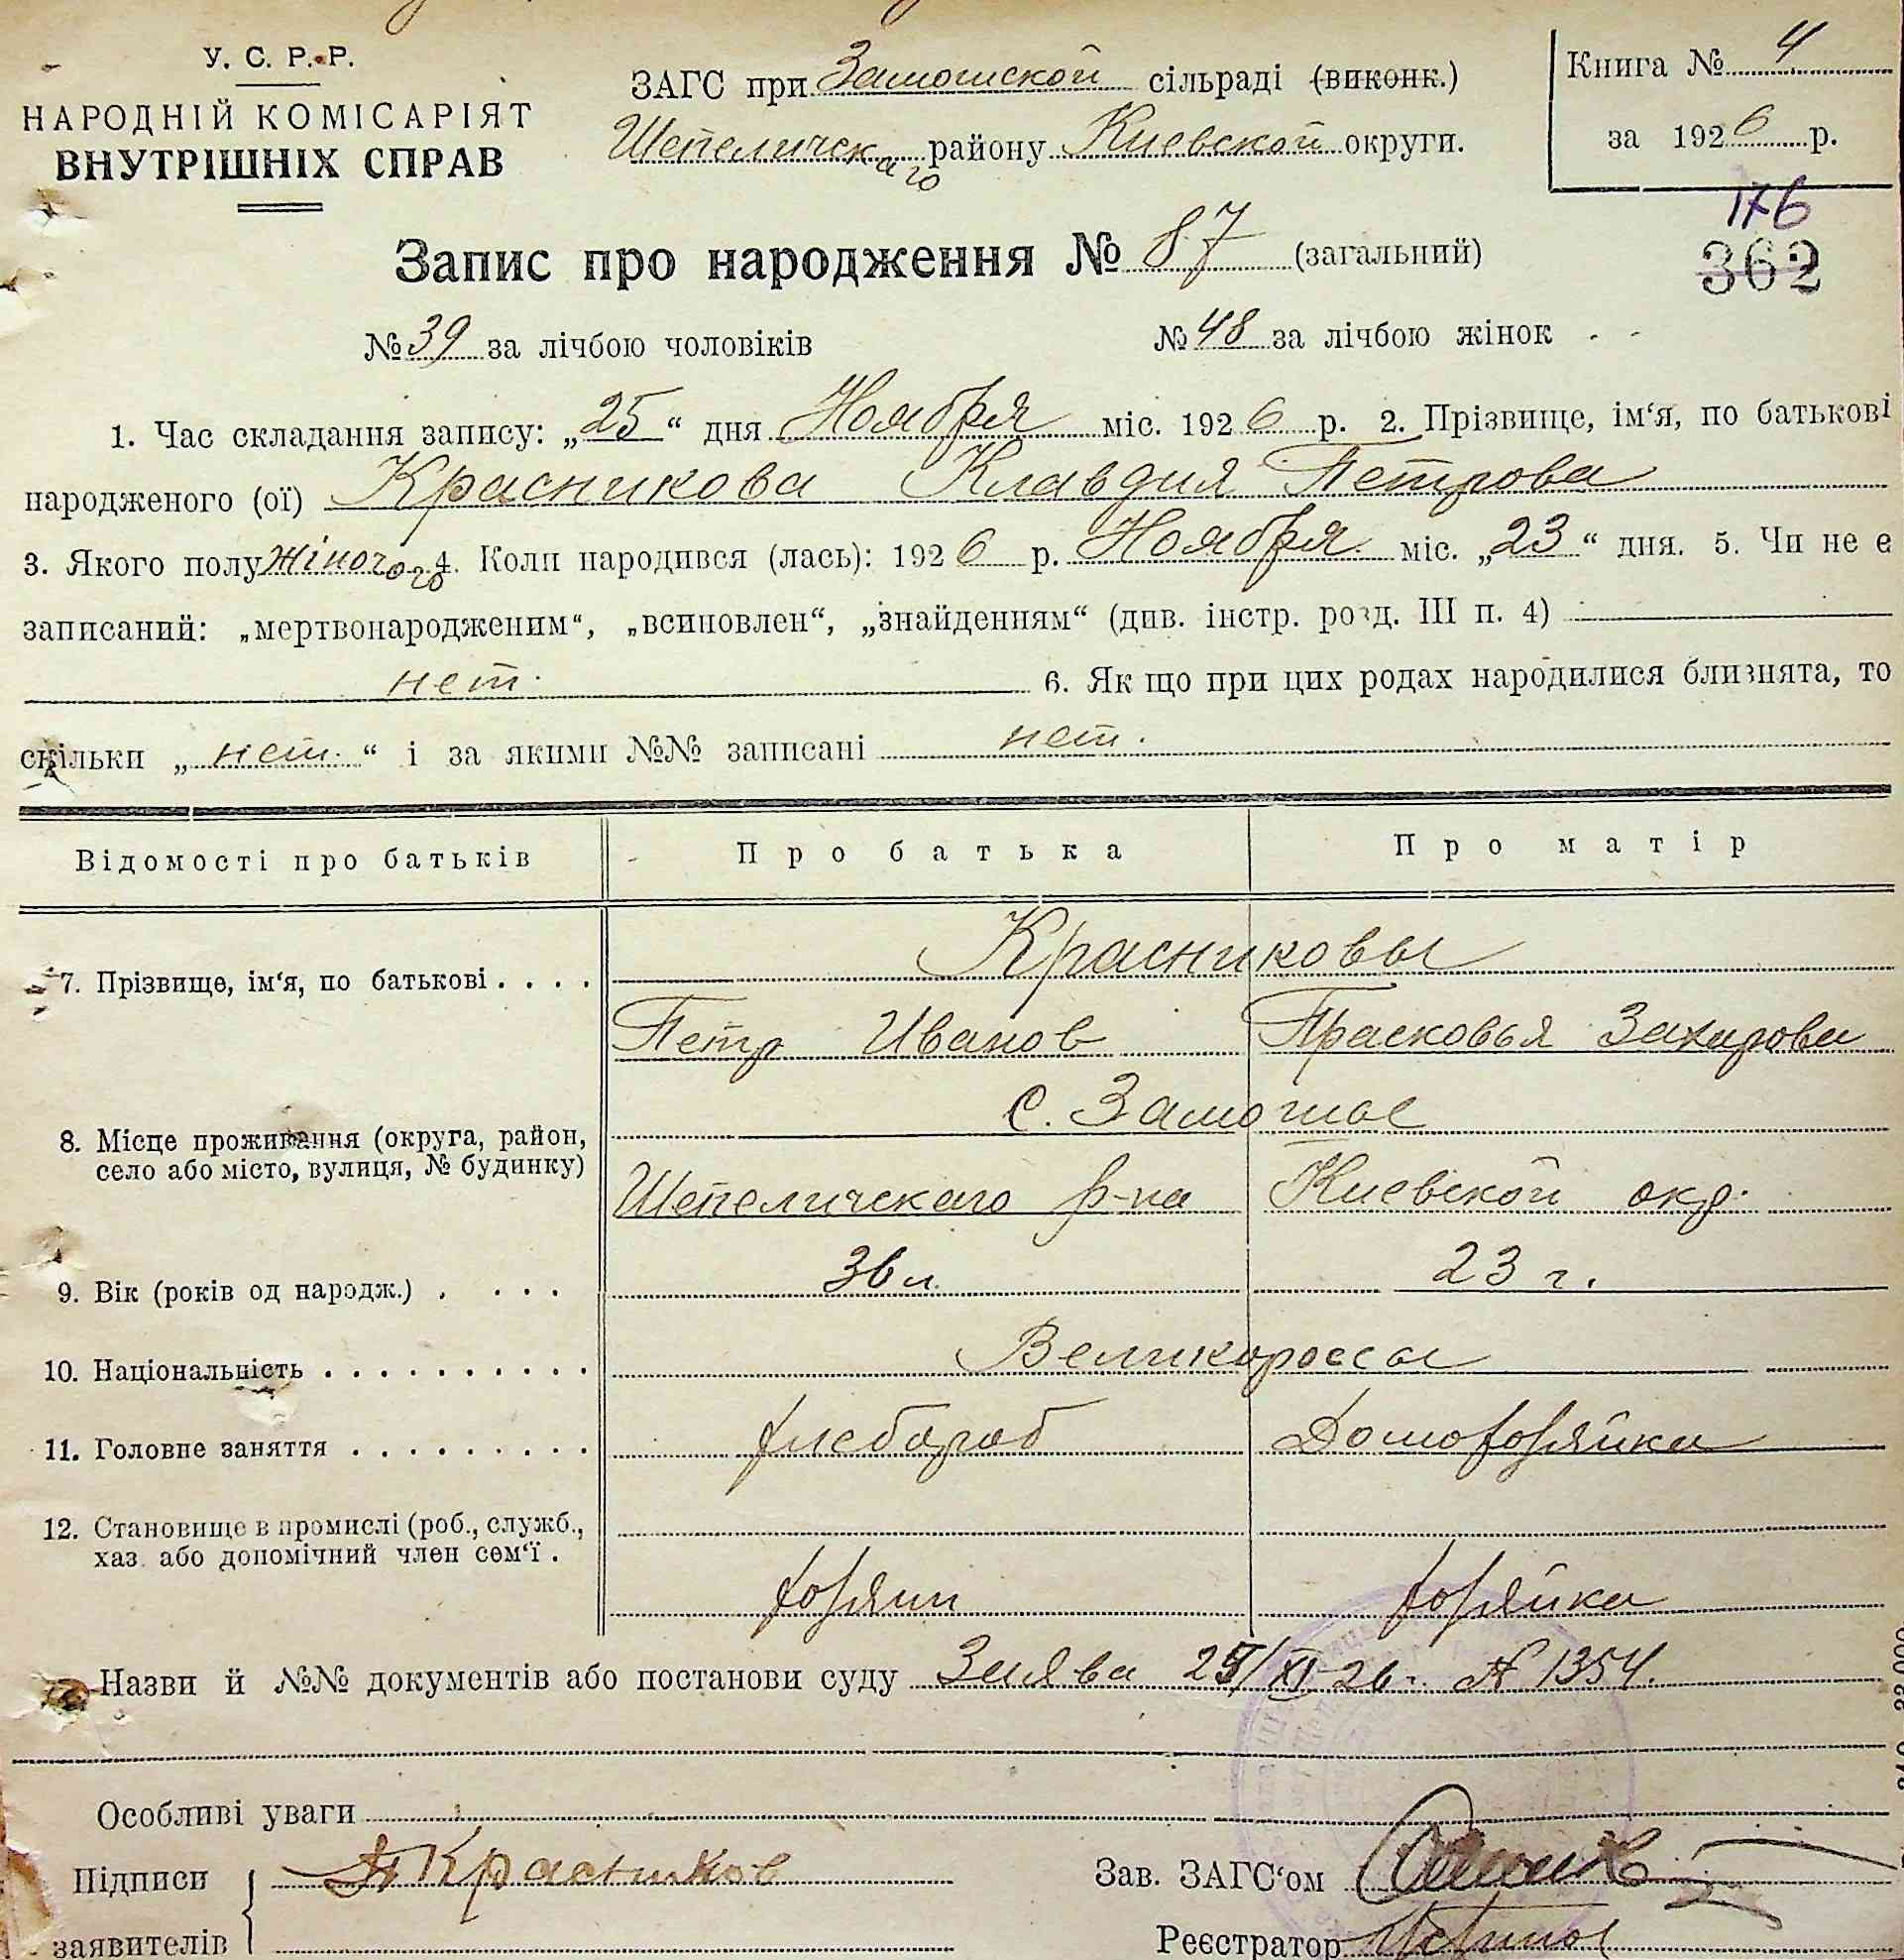 У. С. Р. Р.
НАРОДНІЙ КОМІСАРІЯТ
ВНУТРІШНІХ СПРАВ
ЗАГС при Замошской сільраді (виконк.)
Шепеличскаго району Киевской округи.
Книга № 4
за 1926 р.
176
362
Запис про народження № 87 (загальний)
№ 39 за лічбою чоловіків № 48 за лічбою жінок
1. Час складання запису: „25“ дня Ноября міс. 1926 р. 2. Прізвище, ім‘я, по батькові
народженого (ої) Красникова Клавдия Петрова
3. Якого полу жіночого 4. Коли народився (лась): 1926 р. Ноября міс. „23“ дня. 5. Чи не є
записаний: „мертвонародженим“, „всиновлен“, „знайденням“ (див. інстр. розд. III п. 4)
нет. 6. Як що при цих родах народилися близнята, то
скільки „нет.“ і за якими №№ записані нет.
Відомості про батьків Про батька Про матір
Красниковы
7. Прізвище, ім‘я, по батькові . . . .
Петр Иванов Прасковья Захарова
с. Замошье
8. Місце проживання (округа, район,
село або місто, вулиця, № будинку)
Шепеличскаго р-на Киевской окр.
9. Вік (років од народж.) . . . . 36 л. 23 г.
10. Національність . . . . . . . . . . Великороссы
11. Головне заняття . . . . . . . . . хлебороб Домохозяйка
12. Становище в промислі (роб., служб.,
хаз. або допомічний член сем‘ї .
хозяин хозяйка
Назви й №№ документів або постанови суду Заява 25/XI-26 г. № 1354.
Особливі уваги
Підписи П Красников Зав. ЗАГС‘ом
заявителів Реєстратор